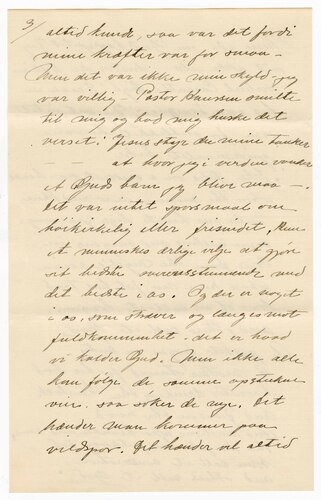 3/
altid kunde, saa var det fordi
mine kræfter var for smaa –
Men det var ikke min skyld – jeg
var villig – Pastor Hansen smilte
til mig og bad mig huske det
verset: Jesus styr du mine tanker
– – at hvor jeg i verden vanker
Et Guds barn jeg blive maa –
Det var intet spørsmaal om
høikirkelig eller frisindet, Kun
et menneskes ærlige vilje at gjøre
sit bedste overensstemmende med
det bedste i os. Og der er noget
i os, som stræver og længes mot
fuldkommenhet. det er hvad
vi kalder Gud. Men ikke alle
kan følge de samme optrukne
veie, saa søker de nye. Det
hænder man kommer paa
vildspor. Det hænder vel altid